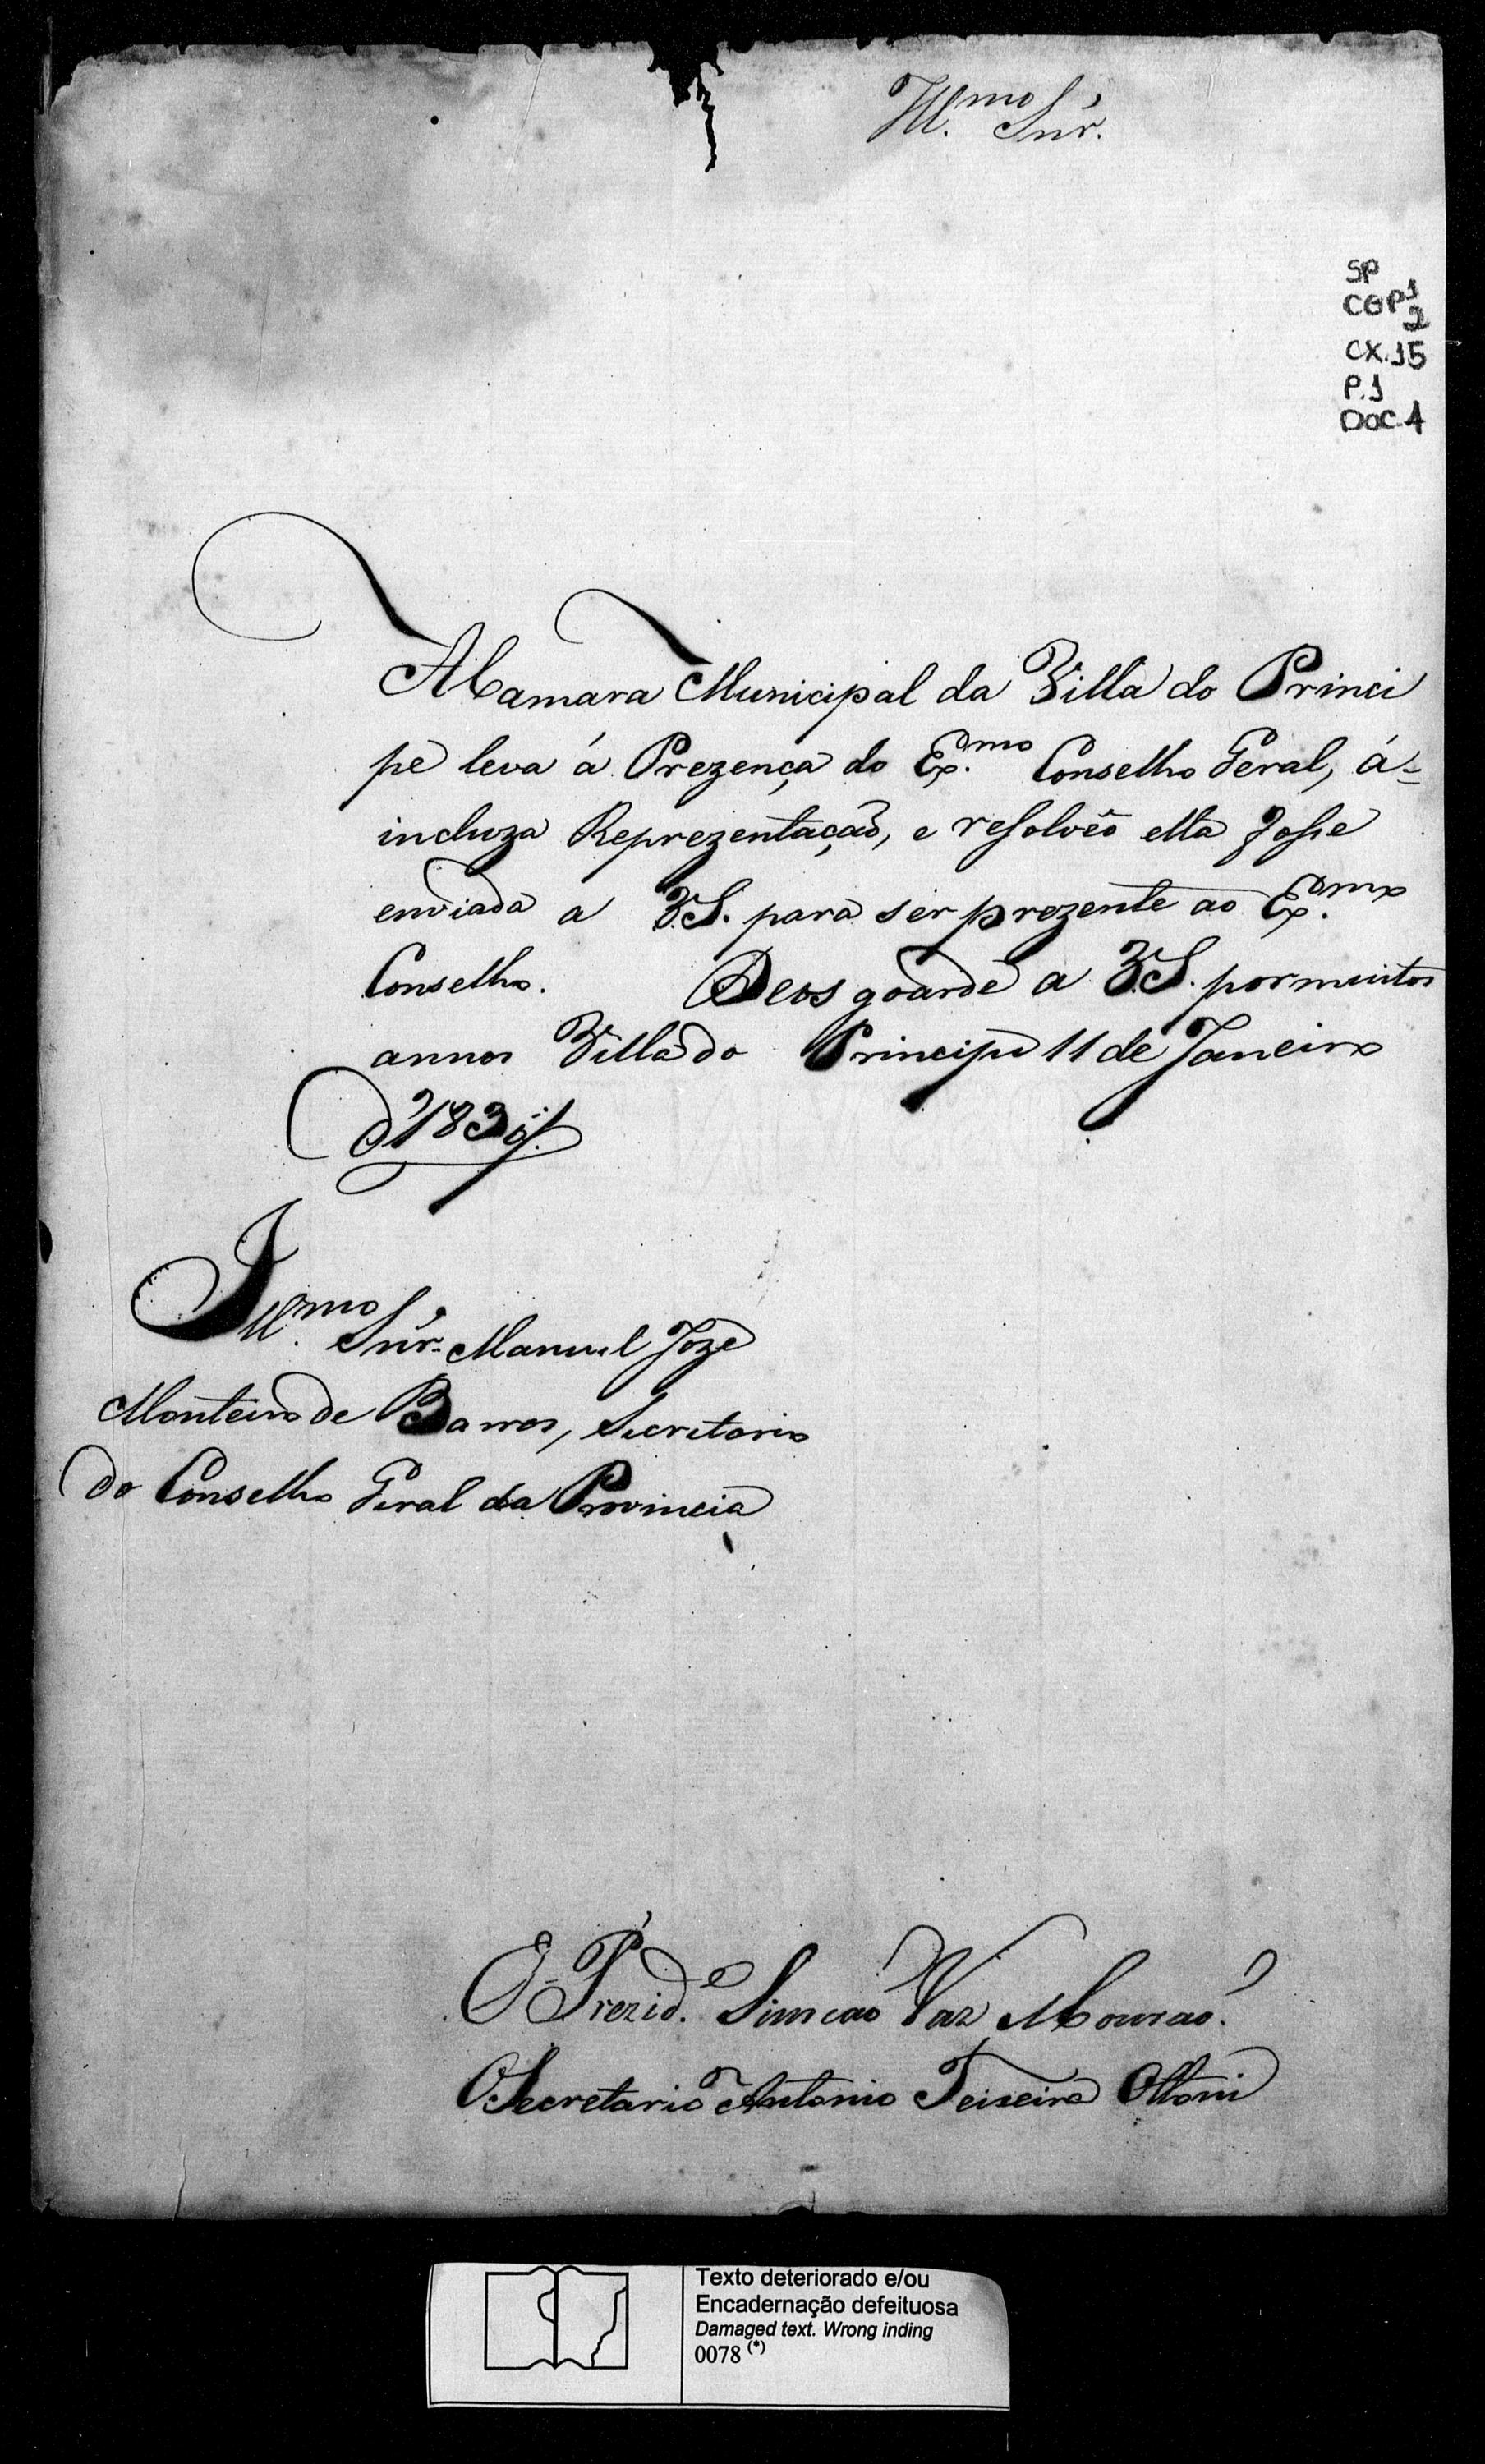 Ill.mo Snr.
SP
CGP 1
2
CX.15
P.1
DOC.4
A Camara Municipal da Villa do Princi
pe leva á Prezença do Ex.mo Conselho Geral, á-
incluza Reprezentação, e resolvêo ella fosse
enviada a V.S. para ser prezente ao Ex.mo
Conselho. Deos goarde a V.S. por muitos
annos Villa do Principe 11 de Janeiro
d'183
Ill.mo Snr. Manuel Joze
Monteiro de Barros, Secretario
do Conselho Geral da Provincia
O Prezid.e Simeaõ Vaz Mouraõ.
O Secretario Antonio Teixeira Ottoni
Texto deteriorado e/ou
Encadernação defeituosa
Damaged text. Wrong inding
0078 (*)